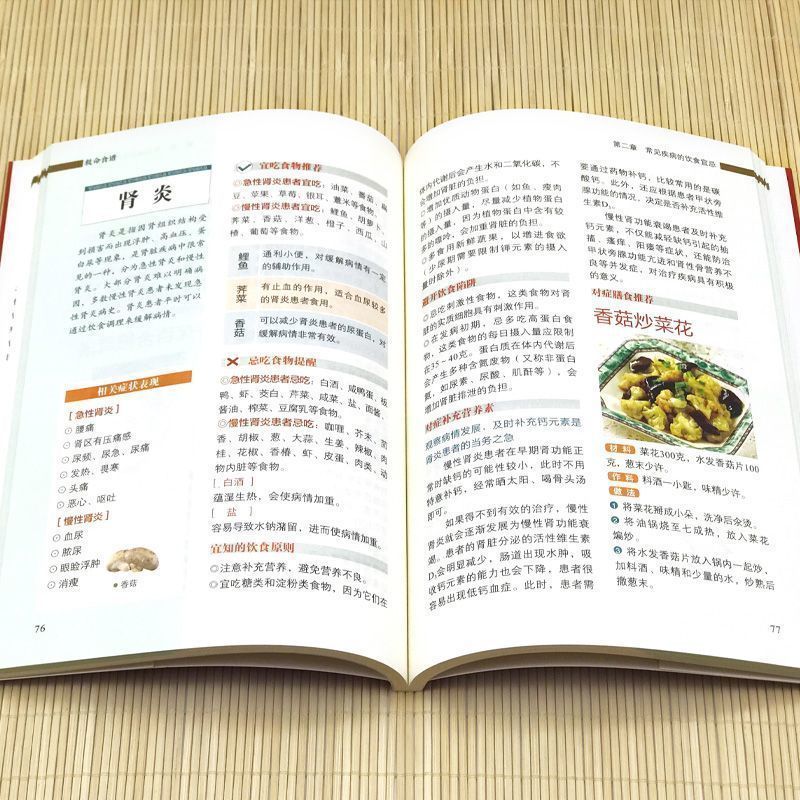 救命食谱
肾炎
肾炎是指因肾组织结构受
到损害而出现浮肿、高血压、蛋
白尿等现象，是肾脏疾病中很常
见的一种，分为急性肾炎和慢性
肾炎。大部分肾炎难以明确病
因，多数慢性肾炎患者未发现急
性肾炎病史。肾炎患者平时可以
通过饮食调理来缓解病情。
相关症状表现
[急性肾炎]
⊙腰痛
⊙肾区有压痛感
⊙尿频、尿急、尿痛
⊙发热、畏寒
⊙头痛
⊙恶心、呕吐
[慢性肾炎]
⊙血尿
⊙脓尿
⊙眼睑浮肿
⊙消瘦
●香菇
76
宜吃食物推荐
◎急性肾炎患者宜吃：油菜、番茄、扁
豆、苹果、草莓、银耳、薏米等食物。
◎慢性肾炎患者宜吃：鲤鱼、胡萝卜、
荠菜、香菇、洋葱、橙子、西瓜、山
楂、葡萄等食物。
鲤鱼
通利小便，对缓解病情有一定
的辅助作用。
荠菜
有止血的作用，适合血尿较多
的肾炎患者食用。
香菇
可以减少肾炎患者的尿蛋白，对
缓解病情非常有效。
忌吃食物提醒
◎急性肾炎患者忌吃：白酒、咸鸭蛋、板
鸭、虾、茭白、芹菜、咸菜、盐、面酱、
酱油、榨菜、豆腐乳等食物。
◎慢性肾炎患者忌吃：咖喱、芥末、茴
香、胡椒、葱、大蒜、生姜、辣椒、肉
桂、花椒、香椿、虾、皮蛋、肉类、动
物内脏等食物。
[白酒]
蕴湿生热，会使病情加重。
[盐]
容易导致水钠潴留，进而使病情加重。
宜知的饮食原则
◎注意补充营养，避免营养不良。
◎宜吃糖类和淀粉类食物，因为它们在
第二章 常见疾病的饮食宜忌
体内代谢后会产生水和二氧化碳，不
会增加肾脏的负担。
◎增加优质动物蛋白（如鱼、瘦肉
等）的摄入量，尽量减少植物蛋白
的摄入量，因为植物蛋白中含有较
多的嘌呤，会加重肾脏的负担。
◎多食用新鲜蔬果，以增进食欲
（少尿期需要限制钾元素的摄入
量时除外）。
避开饮食陷阱
◎忌吃刺激性食物，这类食物对肾
脏的实质细胞具有刺激作用。
◎在发病初期，忌多吃高蛋白食
物，这类食物的每日摄入量应限制
在35～40克。蛋白质在体内代谢后
会产生多种含氮废物（又称非蛋白
氮，如尿素、尿酸、肌酐等），会
增加肾脏排泄的负担。
对症补充营养素
观察病情发展，及时补充钙元素是
肾炎患者的当务之急
慢性肾炎患者在早期肾功能正
常时缺钙的可能性较小，此时不用
特意补钙，经常晒太阳、喝骨头汤
即可。
如果得不到有效的治疗，慢性
肾炎就会逐渐发展为慢性肾功能衰
竭。患者的肾脏分泌的活性维生素
D₃会明显减少，肠道出现水肿，吸
收钙元素的能力也会下降，患者很
容易出现低钙血症。此时，患者需
要通过药物补钙，比较常用的是碳
酸钙。此外，还应根据患者甲状旁
腺功能的情况，决定是否补充活性维
生素D₃。
慢性肾功能衰竭患者及时补充
钙元素，不仅能减轻缺钙引起的抽
搐、瘙痒、阳痿等症状，还能防治
甲状旁腺功能亢进和肾性骨营养不
良等并发症，对治疗疾病具有积极
的意义。
对症膳食推荐
香菇炒菜花
材料 菜花300克，水发香菇片100
克，葱末少许。
作料 料酒一小匙，味精少许。
做法
1 将菜花掰成小朵，洗净后余烫。
2 将油锅烧至七成热，放入菜花
煸炒。
3 将水发香菇片放入锅内一起炒，
加料酒、味精和少量的水，炒熟后
撒葱末。
77